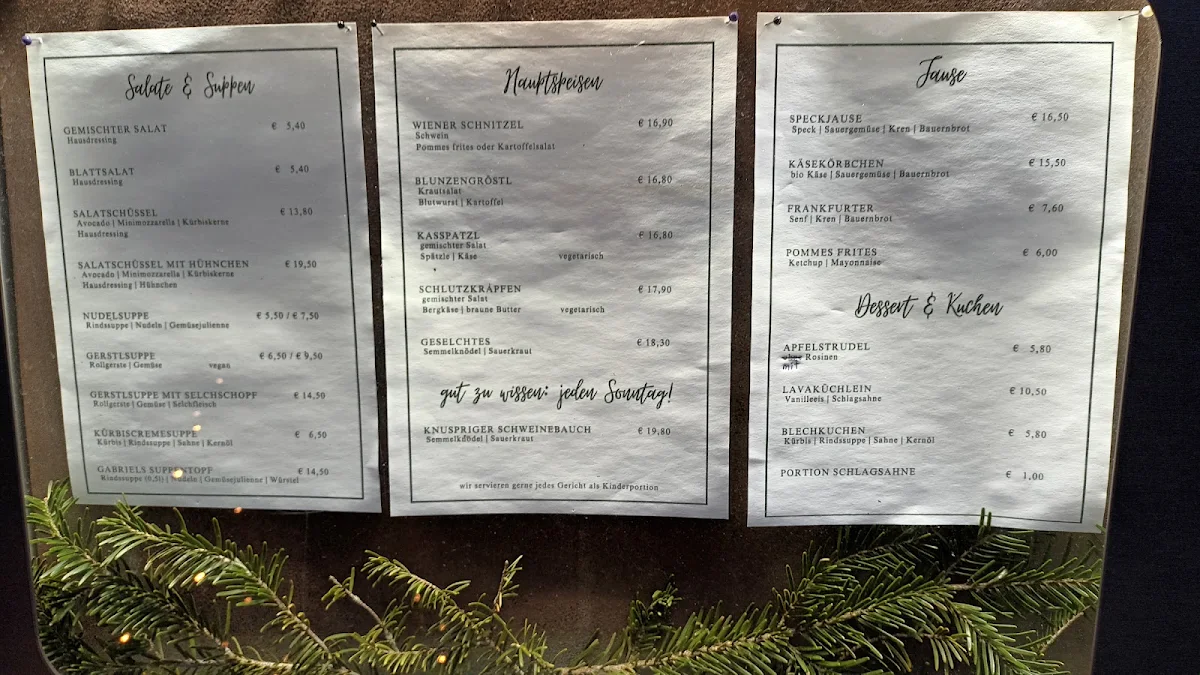 Salate & Suppen
GEMISCHTER SALAT € 5,40
Hausdressing
BLATTSALAT € 5,40
Hausdressing
SALATSCHÜSSEL € 13,80
Avocado | Minimozzarella | Kürbiskerne
Hausdressing
SALATSCHÜSSEL MIT HÜHNCHEN € 19,50
Avocado | Minimozzarella | Kürbiskerne
Hausdressing | Hühnchen
NUDELSUPPE € 5,50 / € 7,50
Rindssuppe | Nudeln | Gemüsejulienne
GERSTLSUPPE € 6,50 / € 9,50
Rollgerste | Gemüse vegan
GERSTLSUPPE MIT SELCHSCHOPF € 14,50
Rollgerste | Gemüse | Selchfleisch
KÜRBISCREMESUPPE € 6,50
Kürbis | Rindssuppe | Sahne | Kernöl
GABRIELS SUPPENTOPF € 14,50
Rindssuppe (0,5l) | Nudeln | Gemüsejulienne | Würstel
Hauptspeisen
WIENER SCHNITZEL € 16,90
Schwein
Pommes frites oder Kartoffelsalat
BLUNZENGRÖSTL € 16,80
Krautsalat
Blutwurst | Kartoffel
KASSPATZL € 16,80
gemischter Salat
Spätzle | Käse vegetarisch
SCHLUTZKRAPFEN € 17,90
gemischter Salat
Bergkäse | braune Butter vegetarisch
GESELCHTES € 18,30
Semmelknödel | Sauerkraut
gut zu wissen: jeden Sonntag!
KNUSPRIGER SCHWEINEBAUCH € 19,80
Semmelknödel | Sauerkraut
wir servieren gerne jedes Gericht als Kinderportion
Jause
SPECKJAUSE € 16,50
Speck | Sauergemüse | Kren | Bauernbrot
KÄSEKÖRBCHEN € 15,50
bio Käse | Sauergemüse | Bauernbrot
FRANKFURTER € 7,60
Senf | Kren | Bauernbrot
POMMES FRITES € 6,00
Ketchup | Mayonnaise
Dessert & Kuchen
APFELSTRUDEL € 5,80
ohne Rosinen
mit
LAVAKÜCHLEIN € 10,50
Vanilleeis | Schlagsahne
BLECHKUCHEN € 5,80
Kürbis | Rindssuppe | Sahne | Kernöl
PORTION SCHLAGSAHNE € 1,00